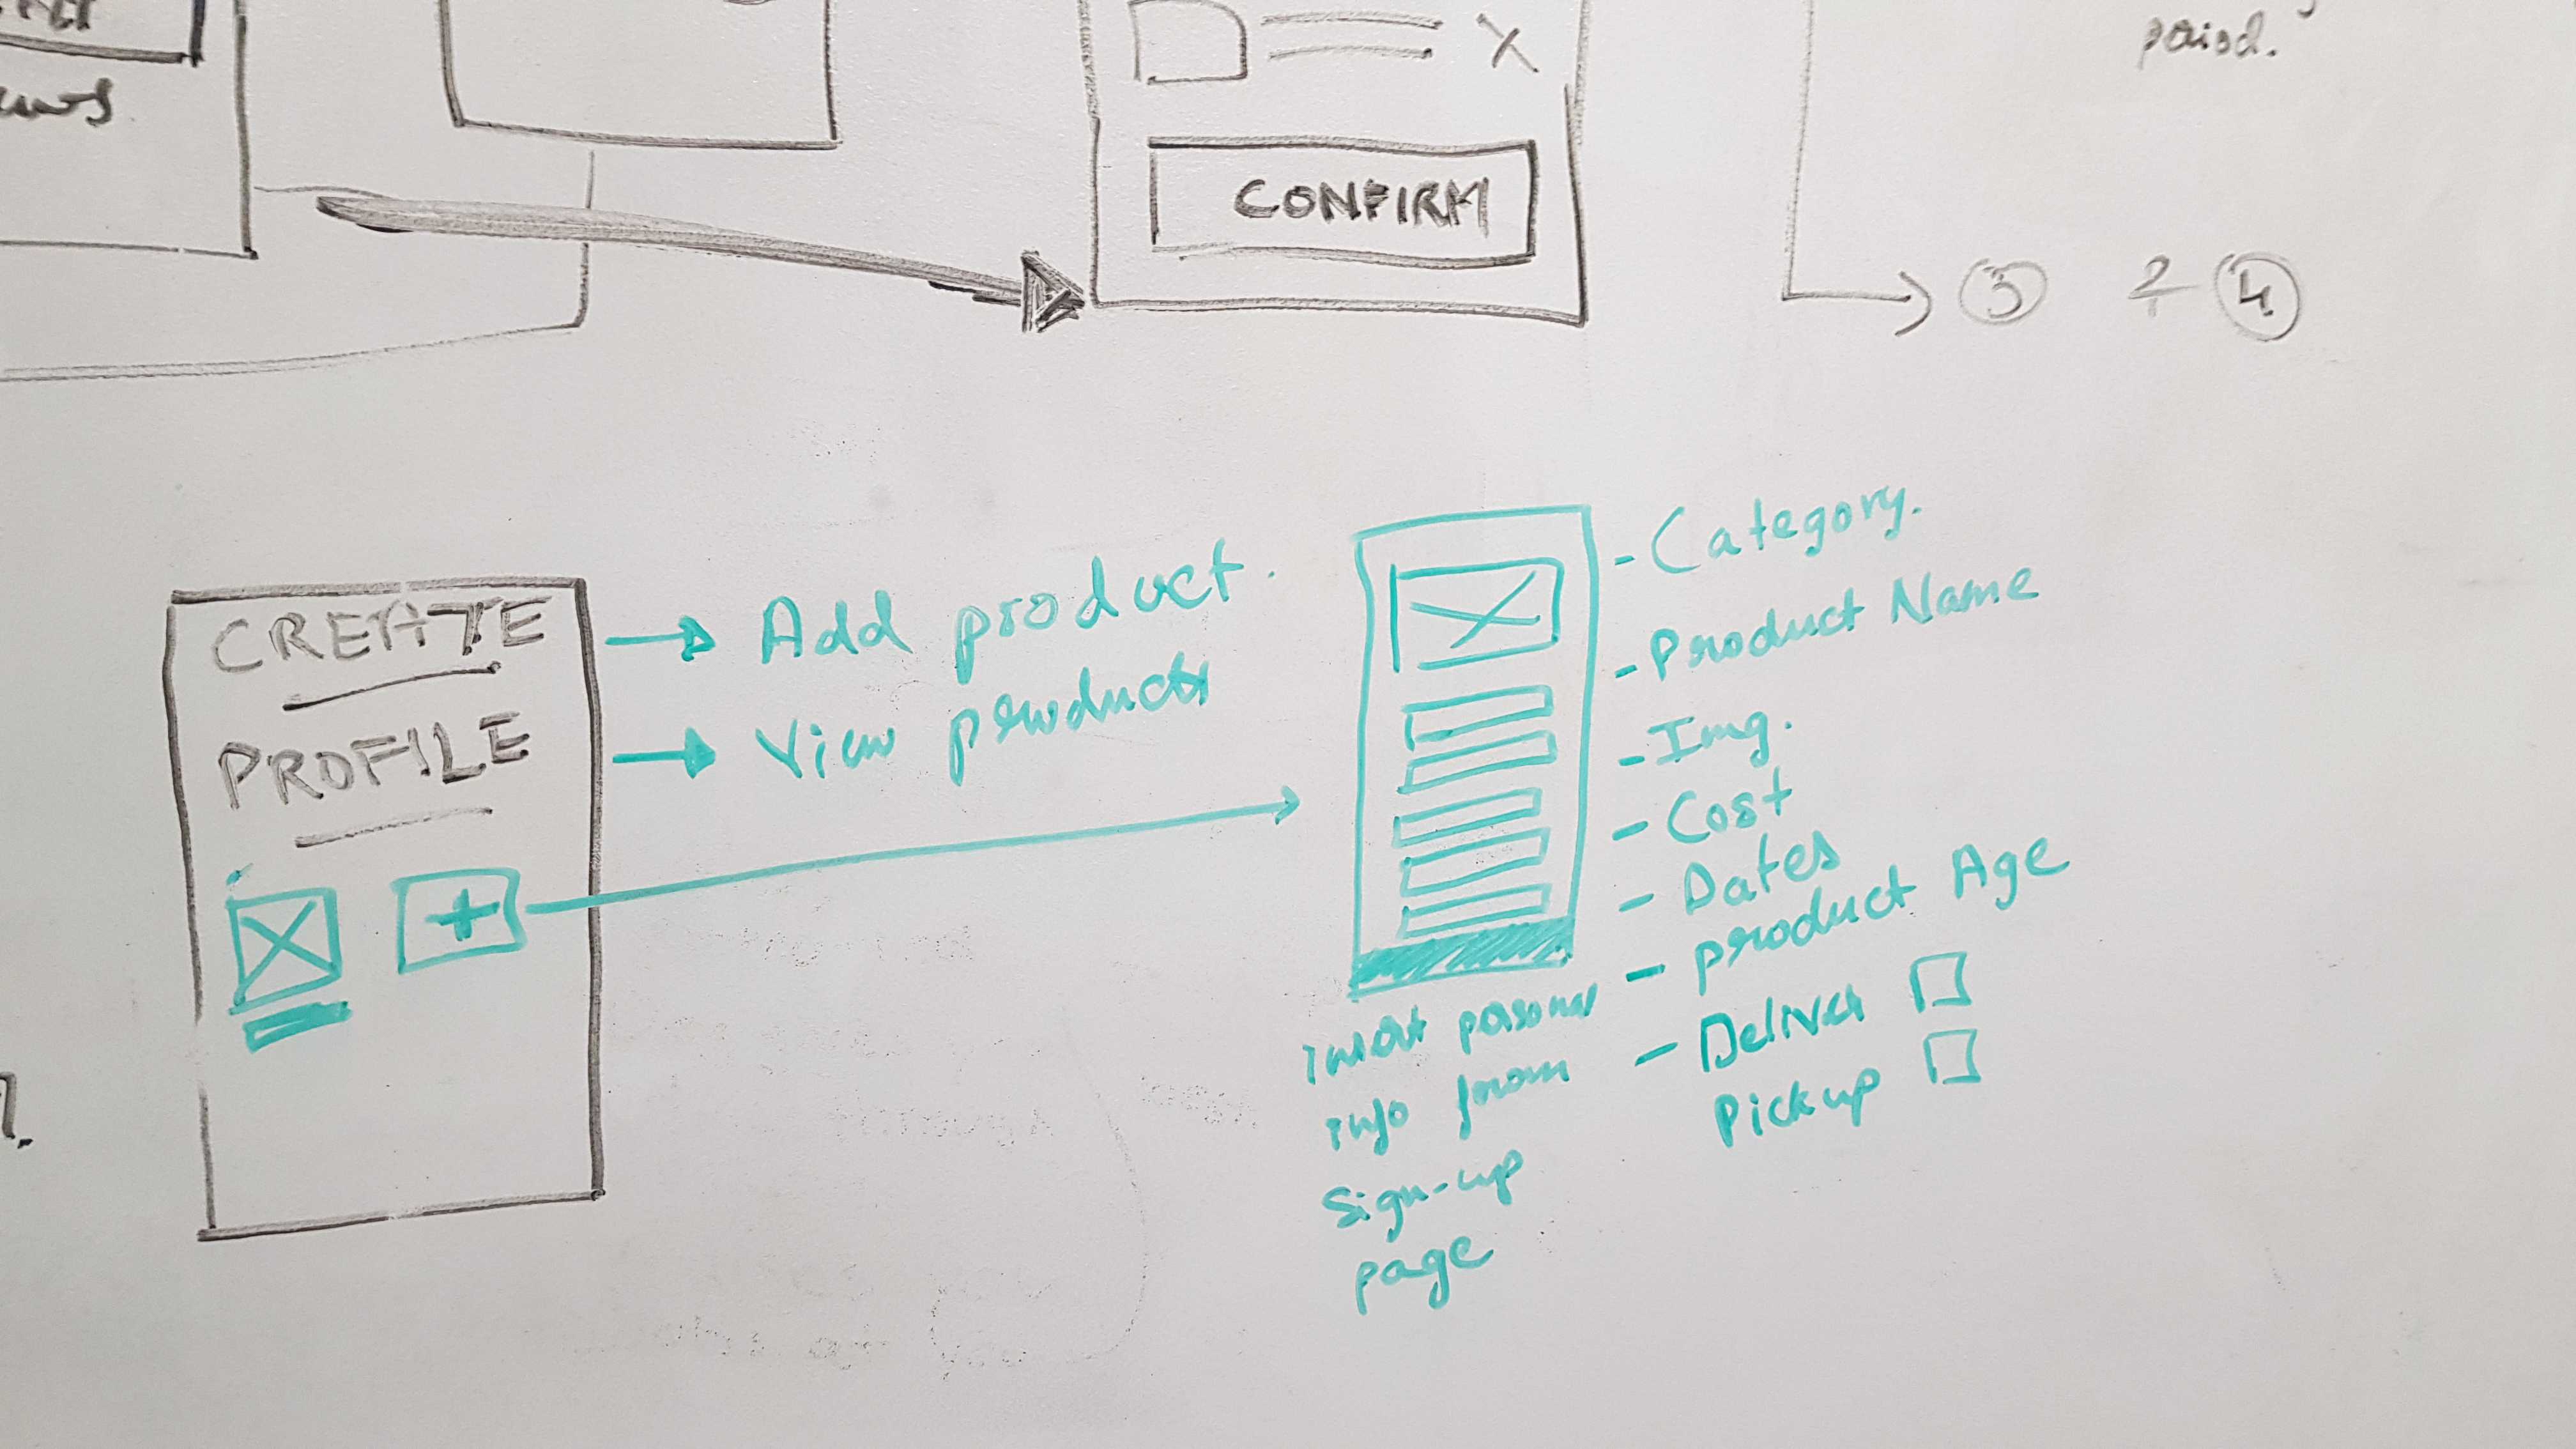 period.
CONFIRM
3 2 4
CREATE
PROFILE
→ Add product.
→ View products
+
- Category.
- Product Name
- Img.
- Cost
- Dates
- product Age
- Deliver
Pickup
insert personal
info from
Sign-up
page